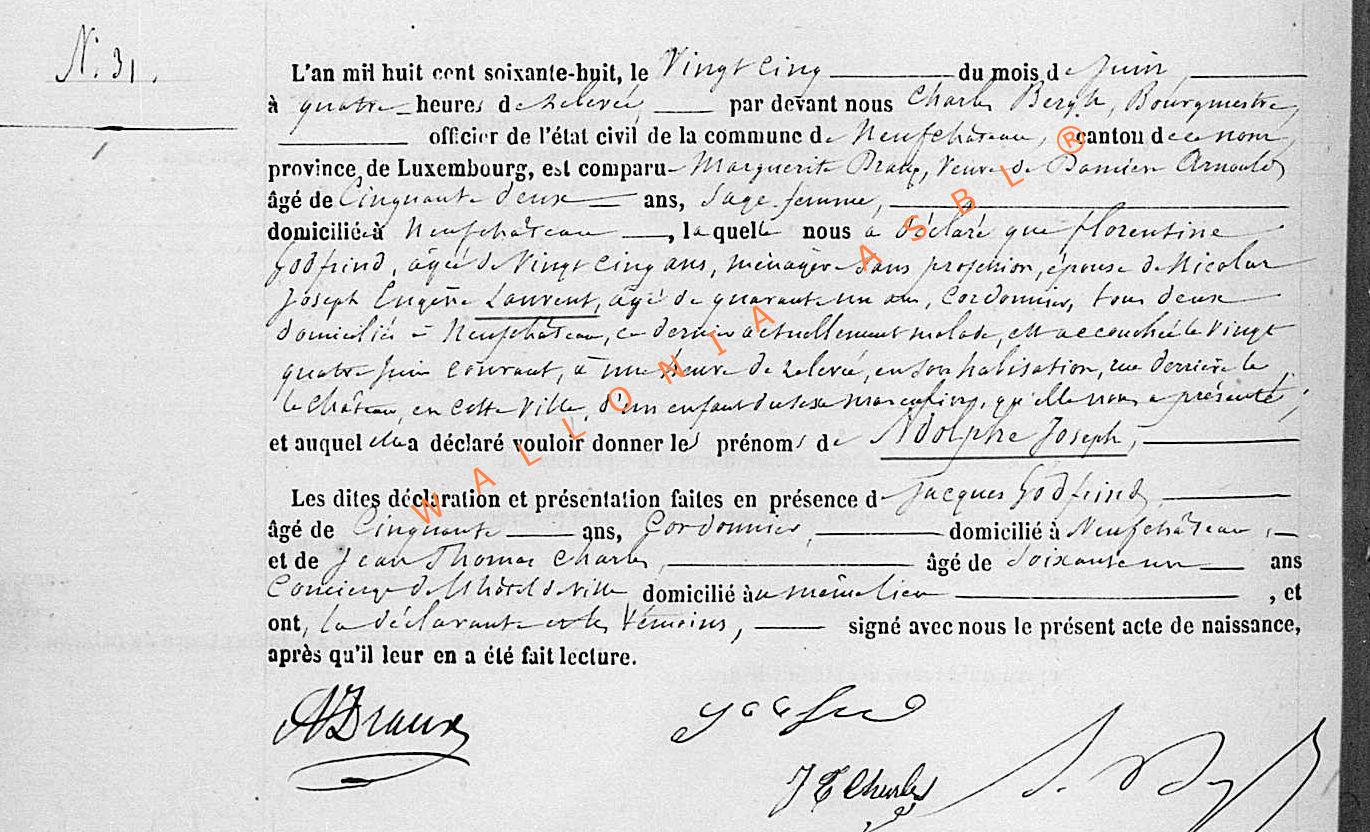 N. 31.
L'an mil huit cent soixante-huit, le Vingt cinq du mois de Juin,
à quatre heures de relevée, par devant nous Charles Bergh, Bourgmestre,
officier de l'état civil de la commune de Neufchâteau, canton de ce nom,
province de Luxembourg, est comparu Marguerite Draux, Veuve de Damien Arnould,
âgé de Cinquante deux ans, Sage femme,
domiciliée à Neufchâteau, laquelle nous a déclaré que florentine
Godfrind, âgée de Vingt cinq ans, ménagère sans profession, épouse de Nicolas
Joseph Eugène Laurent, âgé de quarante un ans, Cordonnier, tous deux
domiciliés à Neufchâteau, ce dernier actuellement malade, est accouchée le Vingt
quatre Juin courant, à une heure de relevée, en son habitation, rue derrière le
le château, en cette Ville, d'un enfant du sexe masculin, qu'elle nous a présenté,
et auquel elle a déclaré vouloir donner les prénoms de Adolphe Joseph,
Les dites déclaration et présentation faites en présence de Jacques Godfrind,
âgé de Cinquante ans, Cordonnier, domicilié à Neufchâteau,
et de Jean Thomas Charles, âgé de Soixante un ans
Concierge de l'hôtel de ville domicilié au même lieu, et
ont, la déclarante et les témoins, signé avec nous le présent acte de naissance,
après qu'il leur en a été fait lecture.
Draux
J T Charles
WALLONIA ASBL ®